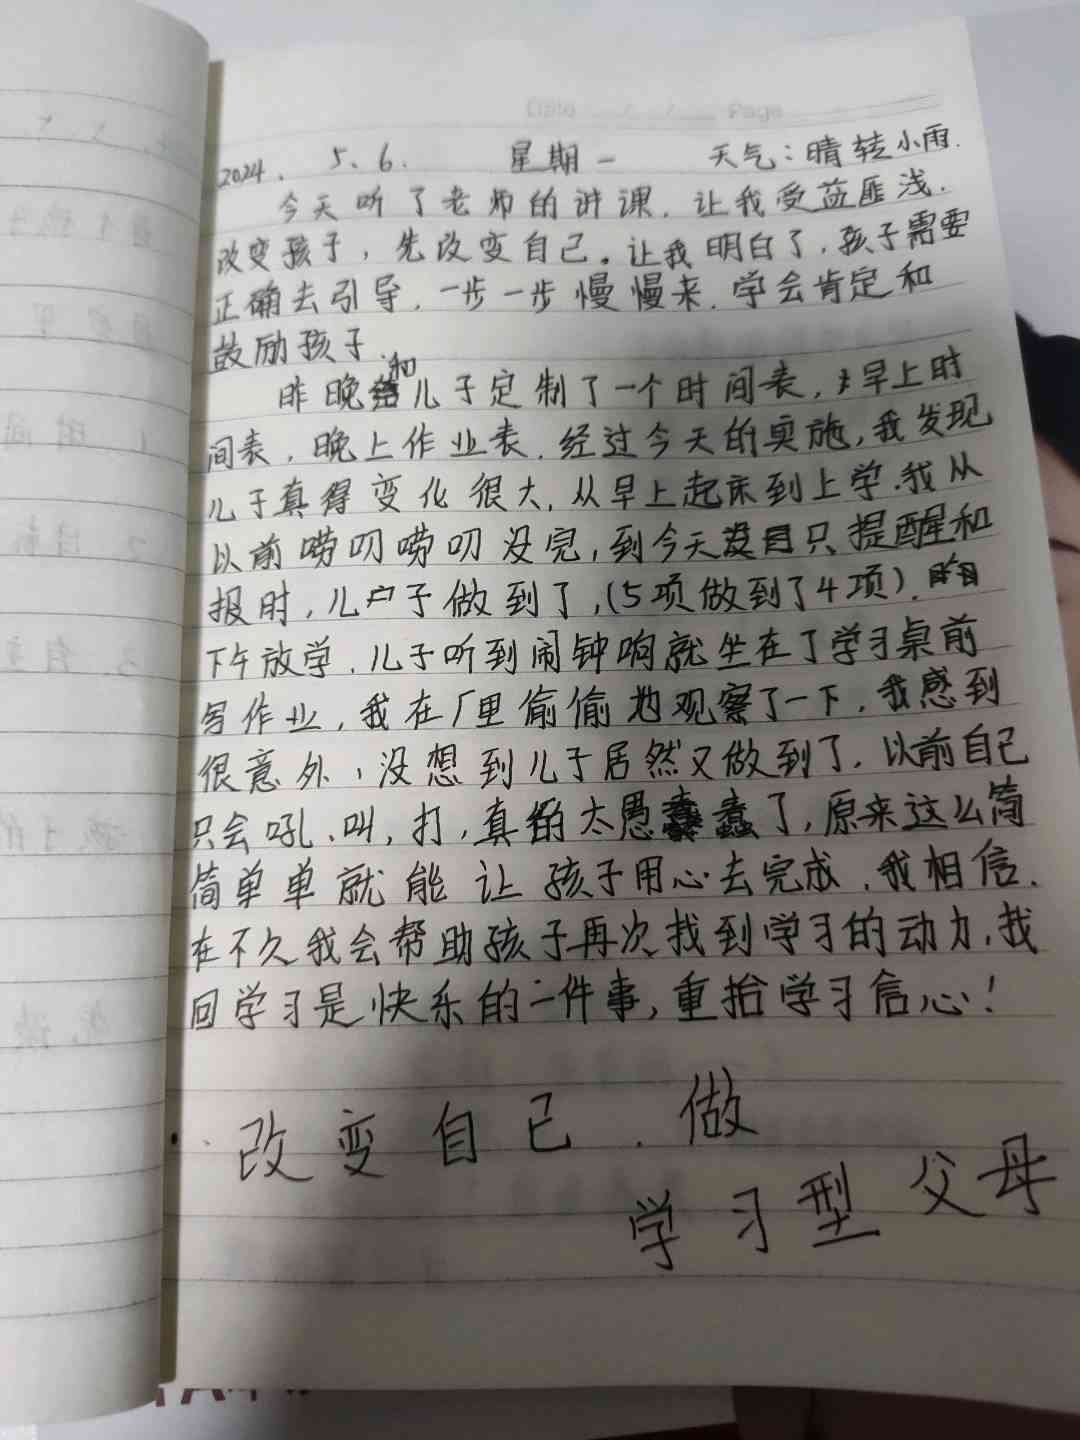 Date Page
2024. 5. 6. 星期一 天气：晴转小雨.
今天听了老师的讲课，让我受益匪浅.
改变孩子，先改变自己。让我明白了，孩子需要
正确去引导，一步一步慢慢来，学会肯定和
鼓励孩子.
昨晚和儿子定制了一个时间表，早上时
间表，晚上作业表.经过今天的实施，我发现
儿子真得变化很大，从早上起床到上学.我从
以前唠叨唠叨没完，到今天只提醒和
报时，儿子做到了，(5项做到了4项).
下午放学，儿子听到闹钟响就坐在了学习桌前
写作业，我在厂里偷偷地观察了一下，我感到
很意外，没想到儿子居然又做到了，以前自己
只会吼、叫，打，真的太愚蠢了，原来这么简
简单单就能让孩子用心去完成，我相信.
在不久我会帮助孩子再次找到学习的动力，找
回学习是快乐的一件事，重拾学习信心！
改变自己.做
学习型父母